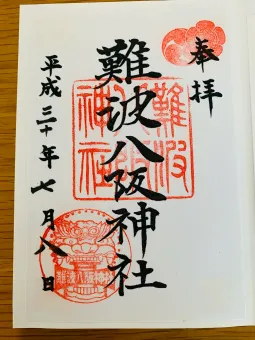 奉拝
難波八阪神社
平成三十年七月八日
難波八阪神社
難波八阪神社